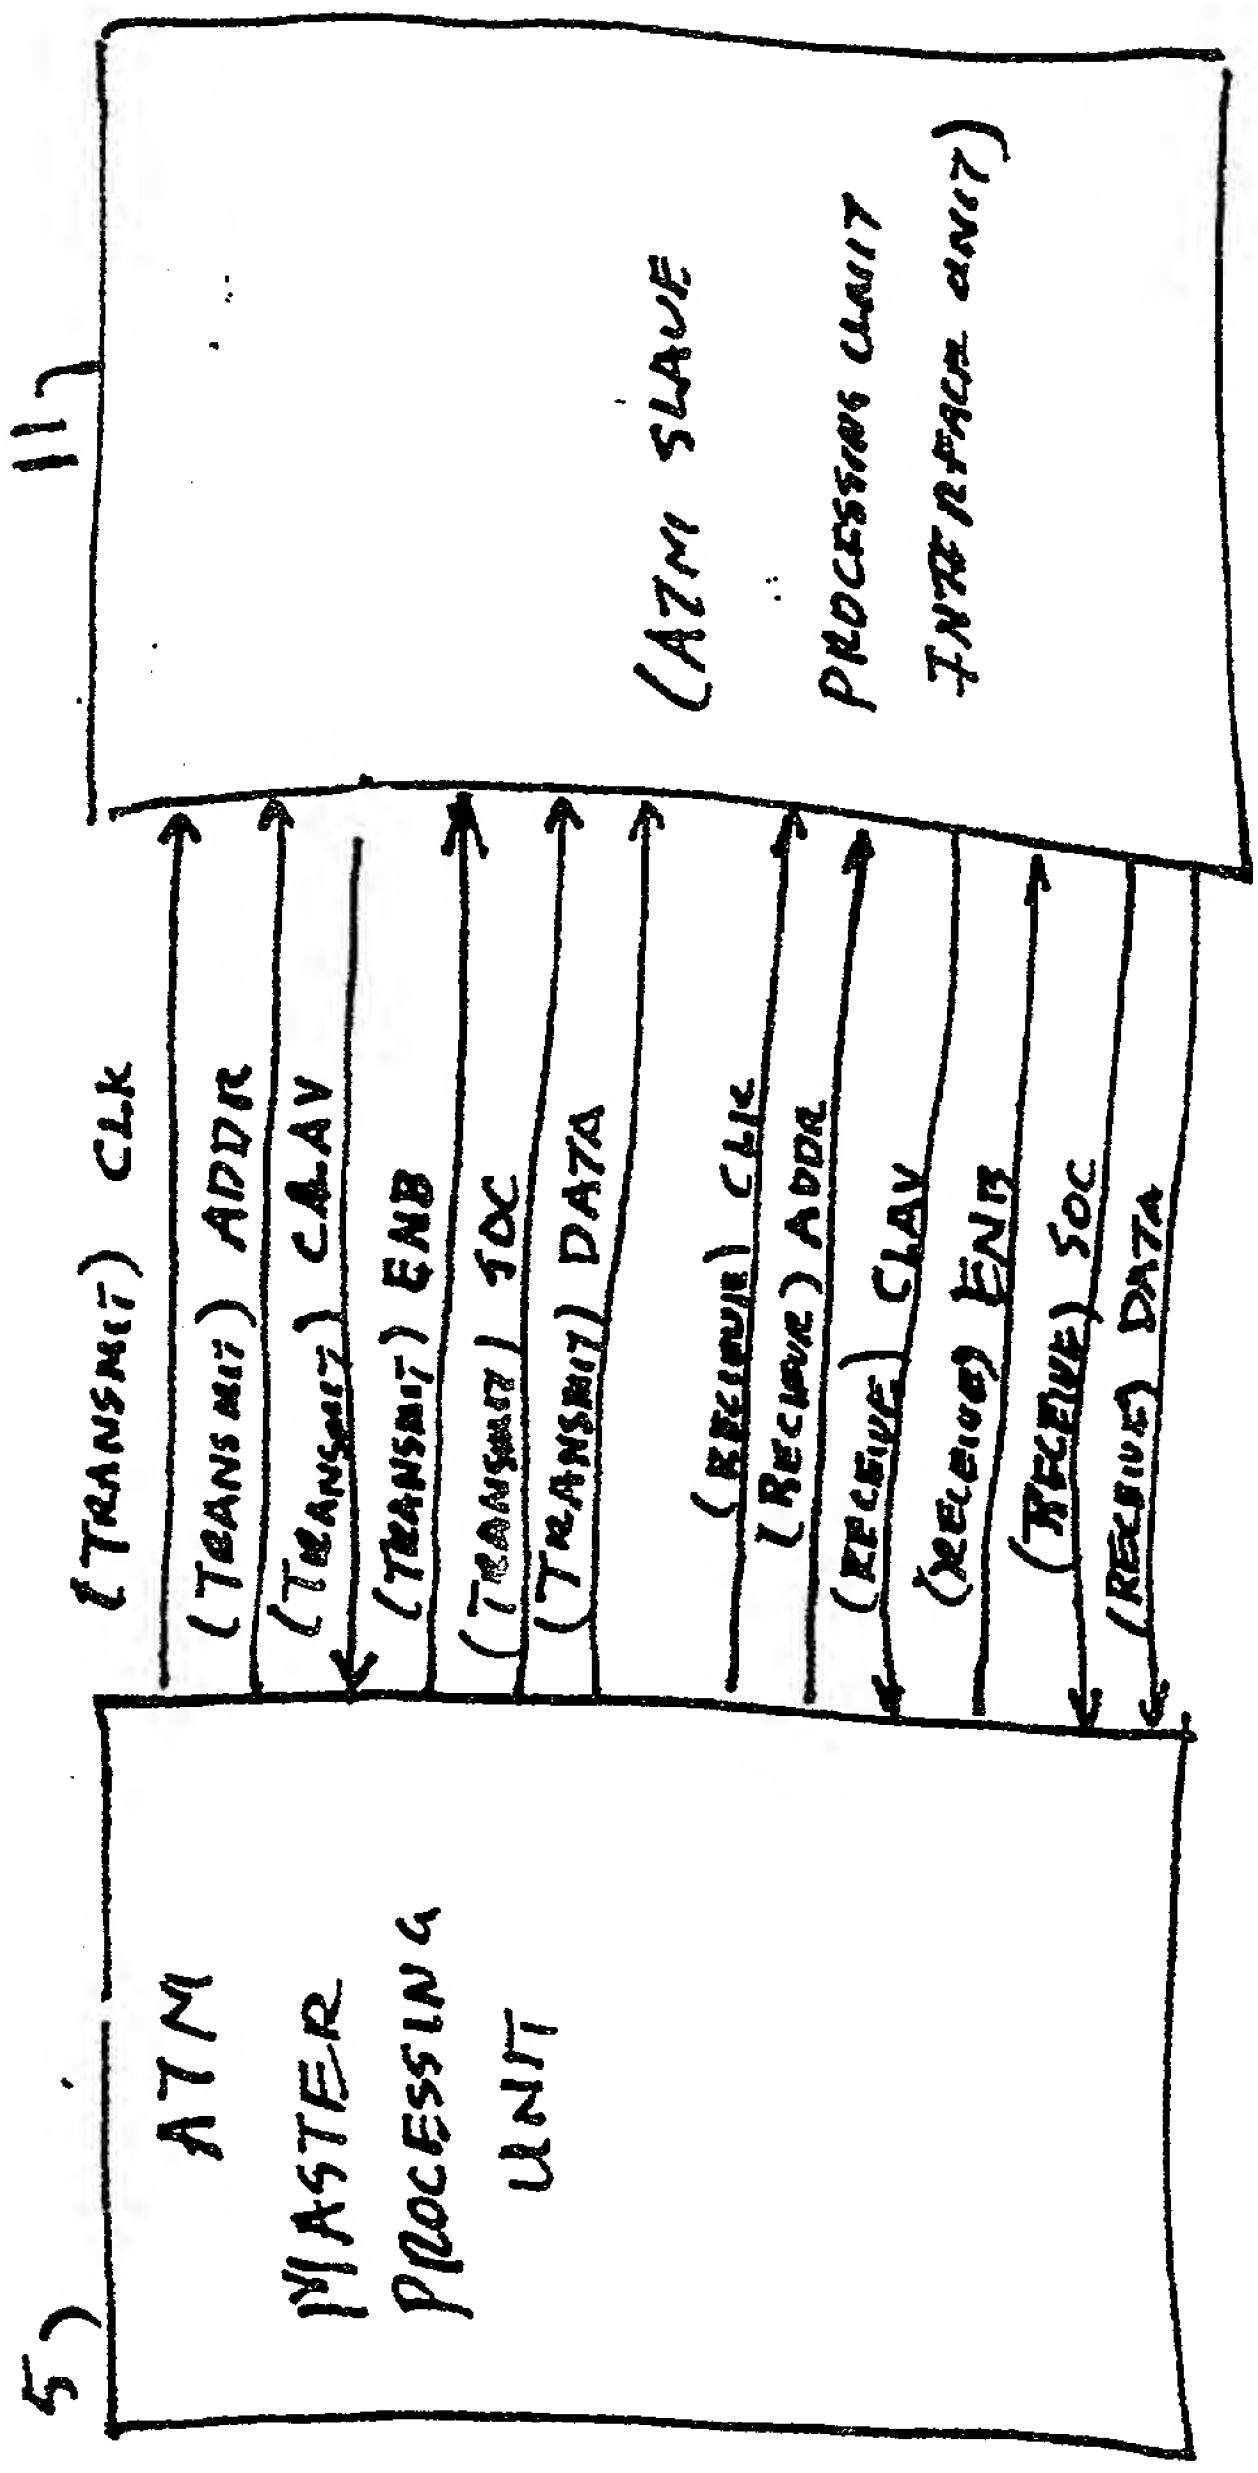 5)
ATM
MASTER
PROCESSING
UNIT
(TRANSMIT) CLK
(TRANSMIT) ADDR
(TRANSMIT) CLAV
(TRANSMIT) ENB
(TRANSMIT) SOC
(TRANSMIT) DATA
(RECIEVE) CLK
(RECIEVE) ADDR
(RECEIVE) CLAV
(RECEIVE) ENB
(RECEIVE) SOC
(RECEIVE) DATA
11)
(ATM SLAVE
PROCESSING UNIT
INTERFACE UNIT)